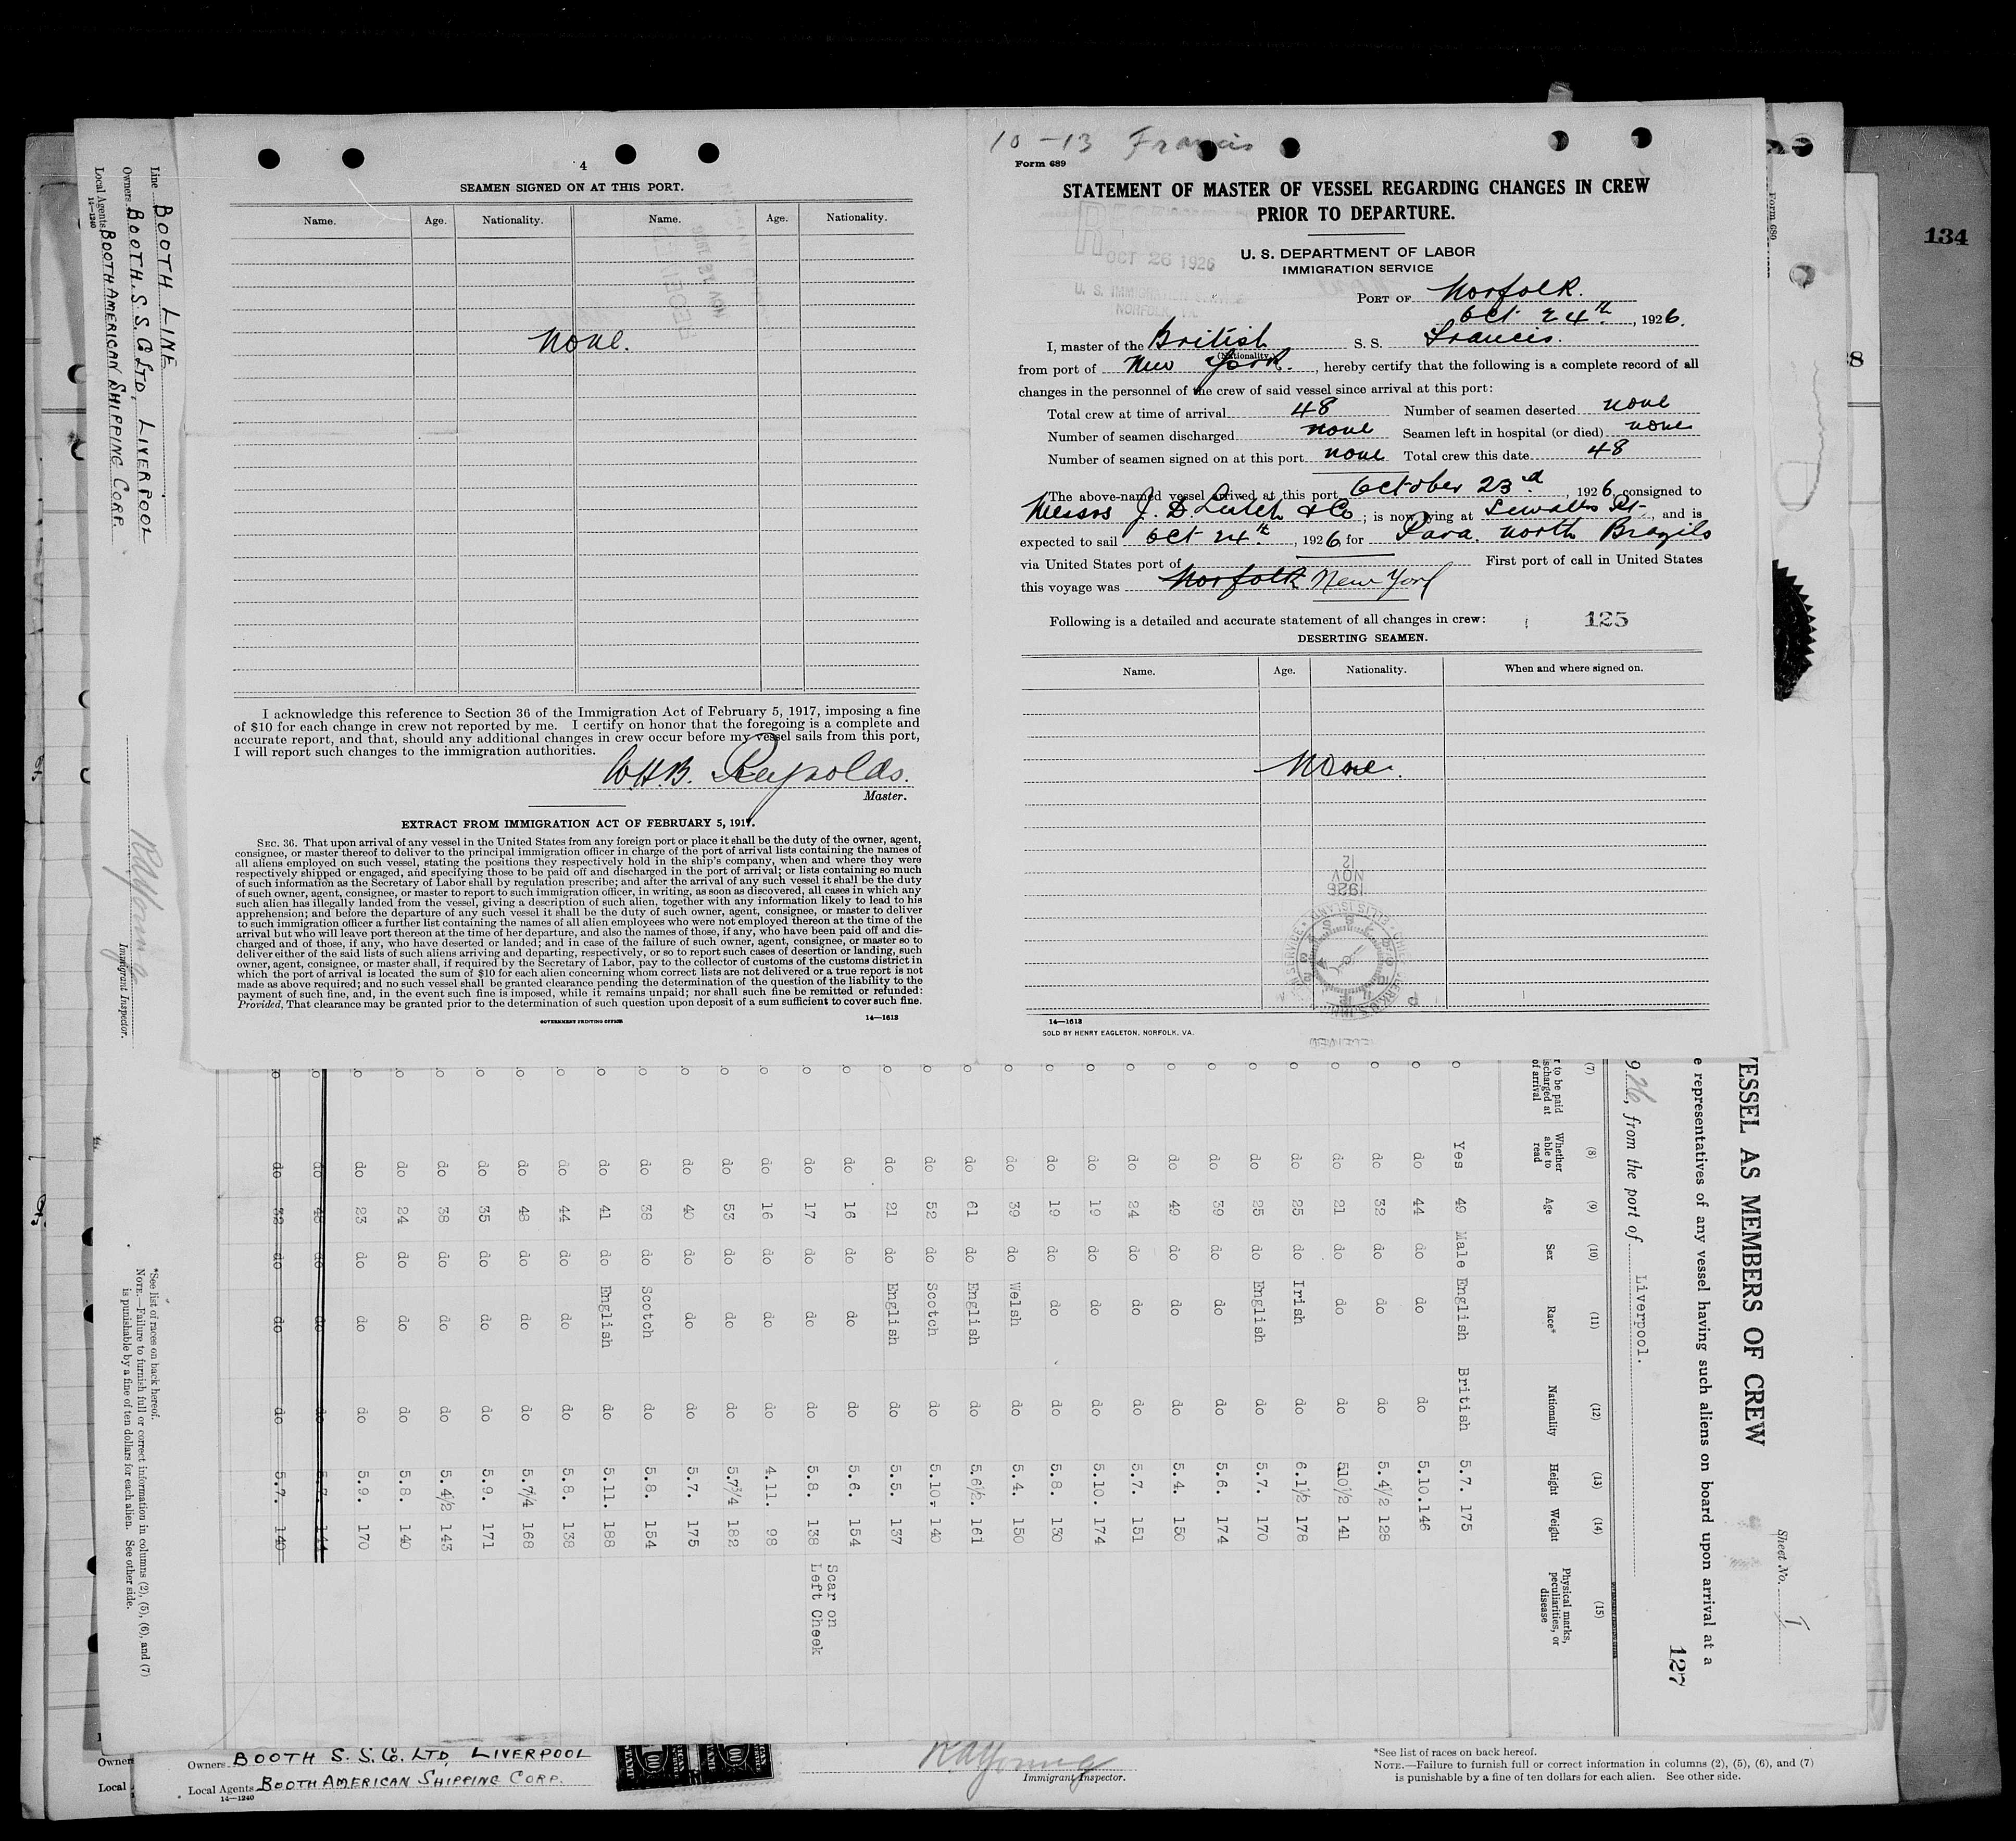 134
10-13 Francis
Form 689
STATEMENT OF MASTER OF VESSEL REGARDING CHANGES IN CREW
PRIOR TO DEPARTURE.
OCT 26 1926
U. S. IMMIGRATION SERVICE
NORFOLK, VA.
U. S. DEPARTMENT OF LABOR
IMMIGRATION SERVICE
PORT OF Norfolk.
Oct 24th, 1926.
I, master of the British S. S. Francis.
(Nationality.)
from port of New York., hereby certify that the following is a complete record of all
changes in the personnel of the crew of said vessel since arrival at this port:
Total crew at time of arrival 48 Number of seamen deserted none
Number of seamen discharged none Seamen left in hospital (or died) none
Number of seamen signed on at this port none Total crew this date 48
The above-named vessel arrived at this port October 23rd, 1926, consigned to
Messrs J. D. Leitch & Co; is now lying at Sewalls Pt., and is
expected to sail Oct 24th, 1926, for Para. north Brazils
via United States port of First port of call in United States
this voyage was Norfolk New York
Following is a detailed and accurate statement of all changes in crew: 125
DESERTING SEAMEN.
Name. Age. Nationality. When and where signed on.
None.
1926
NOV
12
14—1613
SOLD BY HENRY EAGLETON, NORFOLK, VA.
4
SEAMEN SIGNED ON AT THIS PORT.
Name. Age. Nationality. Name. Age. Nationality.
None.
I acknowledge this reference to Section 36 of the Immigration Act of February 5, 1917, imposing a fine
of $10 for each change in crew not reported by me. I certify on honor that the foregoing is a complete and
accurate report, and that, should any additional changes in crew occur before my vessel sails from this port,
I will report such changes to the immigration authorities.
W.H.B. Reynolds.
Master.
EXTRACT FROM IMMIGRATION ACT OF FEBRUARY 5, 1917.
SEC. 36. That upon arrival of any vessel in the United States from any foreign port or place it shall be the duty of the owner, agent,
consignee, or master thereof to deliver to the principal immigration officer in charge of the port of arrival lists containing the names of
all aliens employed on such vessel, stating the positions they respectively hold in the ship's company, when and where they were
respectively shipped or engaged, and specifying those to be paid off and discharged in the port of arrival; or lists containing so much
of such information as the Secretary of Labor shall by regulation prescribe; and after the arrival of any such vessel it shall be the duty
of such owner, agent, consignee, or master to report to such immigration officer, in writing, as soon as discovered, all cases in which any
such alien has illegally landed from the vessel, giving a description of such alien, together with any information likely to lead to his
apprehension; and before the departure of any such vessel it shall be the duty of such owner, agent, consignee, or master to deliver
to such immigration officer a further list containing the names of all alien employees who were not employed thereon at the time of the
arrival but who will leave port thereon at the time of her departure, and also the names of those, if any, who have been paid off and dis-
charged and of those, if any, who have deserted or landed; and in case of the failure of such owner, agent, consignee, or master so to
deliver either of the said lists of such aliens arriving and departing, respectively, or so to report such cases of desertion or landing, such
owner, agent, consignee, or master shall, if required by the Secretary of Labor, pay to the collector of customs of the customs district in
which the port of arrival is located the sum of $10 for each alien concerning whom correct lists are not delivered or a true report is not
made as above required; and no such vessel shall be granted clearance pending the determination of the question of the liability to the
payment of such fine, and, in the event such fine is imposed, while it remains unpaid; nor shall such fine be remitted or refunded:
Provided, That clearance may be granted prior to the determination of such question upon deposit of a sum sufficient to cover such fine.
GOVERNMENT PRINTING OFFICE 14—1613
Line BOOTH LINE
Owners BOOTH. S. S. Co LTD, LIVERPOOL
Local Agents BOOTH AMERICAN SHIPPING CORP.
14—1240
RAYoung
Immigrant Inspector.
*See list of races on back hereof.
NOTE.—Failure to furnish full or correct information in columns (2), (5), (6), and (7)
is punishable by a fine of ten dollars for each alien. See other side.
Form 680
Sheet No. 1
ESSEL AS MEMBERS OF CREW
e representatives of any vessel having such aliens on board upon arrival at a
127
926, from the port of Liverpool.
(7) (8) (9) (10) (11) (12) (13) (14) (15)
r to be paid
ischarged at
of arrival
Whether able to read
Age Sex Race* Nationality Height Weight
Physical marks, peculiarities, or disease
o Yes 49 Male English British 5.7. 175
o do 44 do do do 5.10. 146
o do 32 do do do 5.4½ 128
o do 21 do do do 510½ 141
o do 25 do Irish do 6.1½ 178
o do 25 do English do 5.7. 170
o do 39 do do do 5.6. 174
o do 49 do do do 5.4. 150
o do 24 do do do 5.7. 151
o do 19 do do do 5.10. 174
o do 19 do do do 5.8. 130
o do 39 do Welsh do 5.4. 150
o do 61 do English do 5.6½. 161
o do 52 do Scotch do 5.10. 140
o do 21 do English do 5.5. 137
o do 16 do do do 5.6. 154
o do 17 do do do 5.8. 138 Scar on Left Cheek
o do 16 do do do 4.11. 98
o do 53 do do do 5.7¾ 182
o do 40 do do do 5.7. 175
o do 38 do Scotch do 5.8. 154
o do 41 do English do 5.11. 188
o do 44 do do do 5.8. 138
o do 48 do do do 5.7¼ 168
o do 35 do do do 5.9. 171
o do 38 do do do 5.4½ 143
o do 24 do do do 5.8. 140
o do 23 do do do 5.9. 170
o do 48 do do do 5.7. 144
o do 32 do do do 5.7. 140
Owners BOOTH S. S. Co. LTD, LIVERPOOL
Local Agents BOOTH AMERICAN SHIPPING CORP.
14—1240
RAYoung
Immigrant Inspector.
*See list of races on back hereof.
NOTE.—Failure to furnish full or correct information in columns (2), (5), (6), and (7)
is punishable by a fine of ten dollars for each alien. See other side.